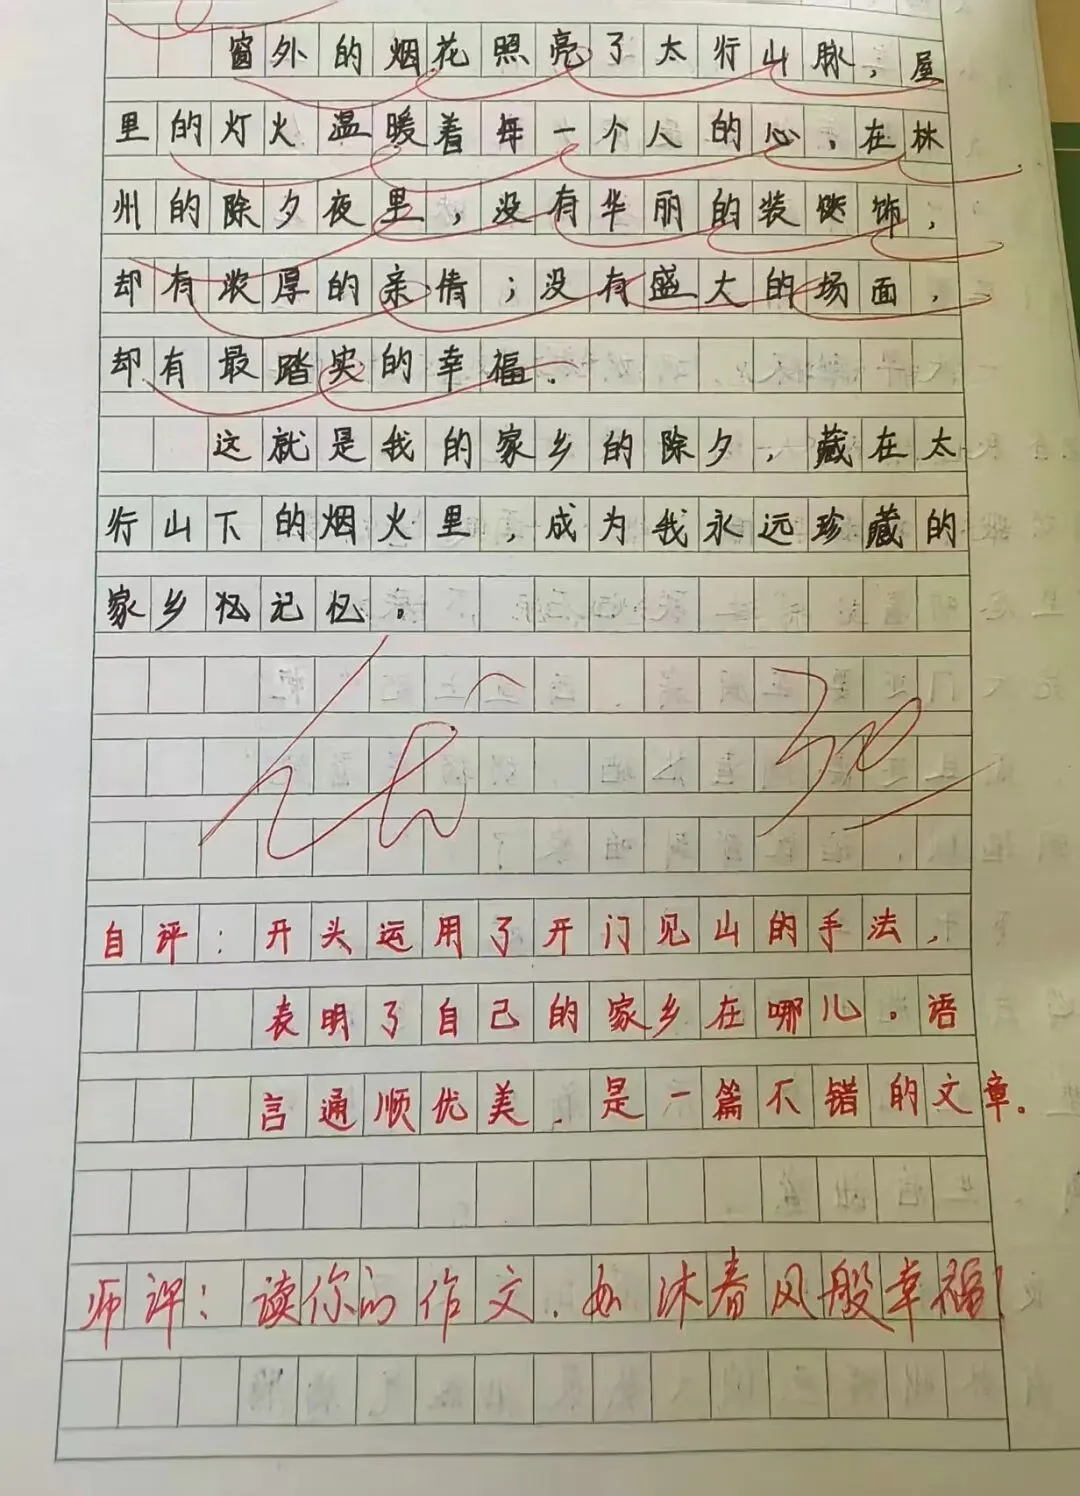 窗外的烟花照亮了太行山脉，屋
里的灯火温暖着每一个人的心，在林
州的除夕夜里，没有华丽的装饰，
却有浓厚的亲情；没有盛大的场面，
却有最踏实的幸福。
这就是我的家乡的除夕，藏在太
行山下的烟火里，成为我永远珍藏的
家乡记忆。
优 30
自评：开头运用了开门见山的手法，
表明了自己的家乡在哪儿。语
言通顺优美，是一篇不错的文章。
师评：读你的作文，如沐春风般幸福！